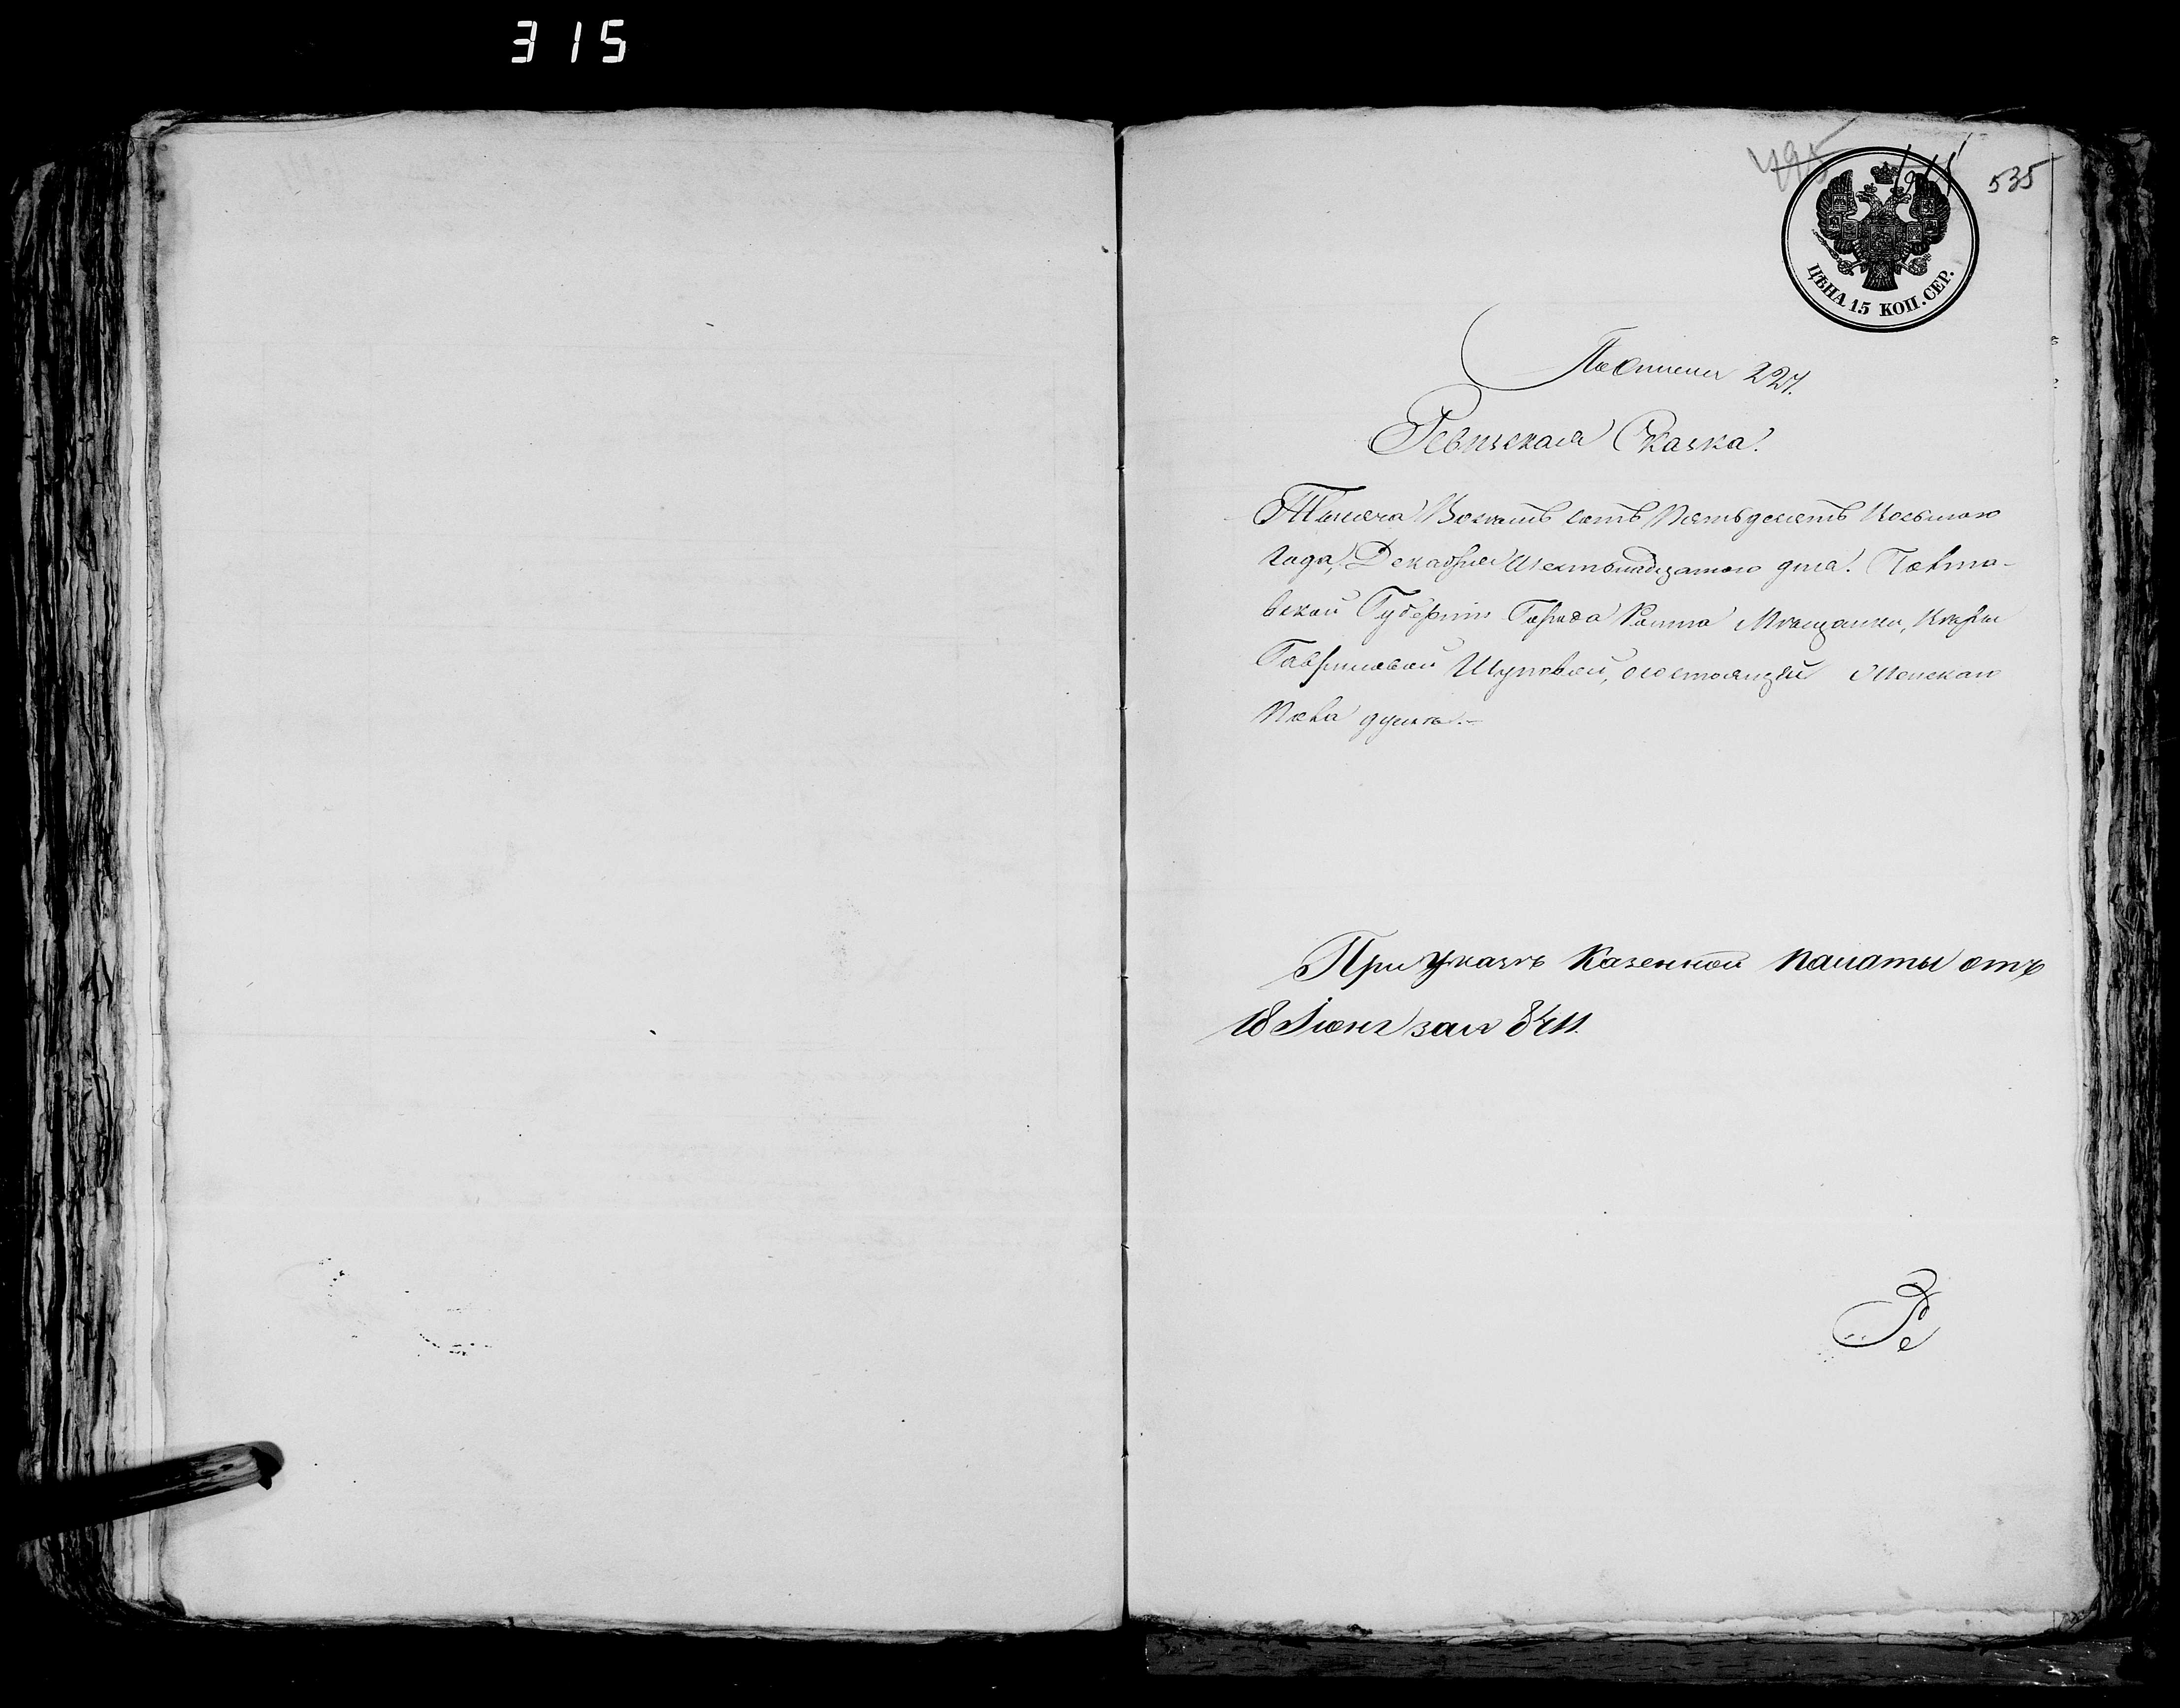 315
495
535
ЦѢНА 15 КОП. СЕР.
По описи 227.
Ревизская Сказка.
Тысяча Восемь сотъ Пятьдесятъ Восьмаго
Года, Декабря Шестьнадцатого дня. Полта-
вской Губерніи Города Ромна Мѣщанки,
Гавриловой Шуповой, о состоящей Женскаго
Пола душѣ.-
При Указѣ Казенной Палаты отъ
18 Іюня за №
Ре